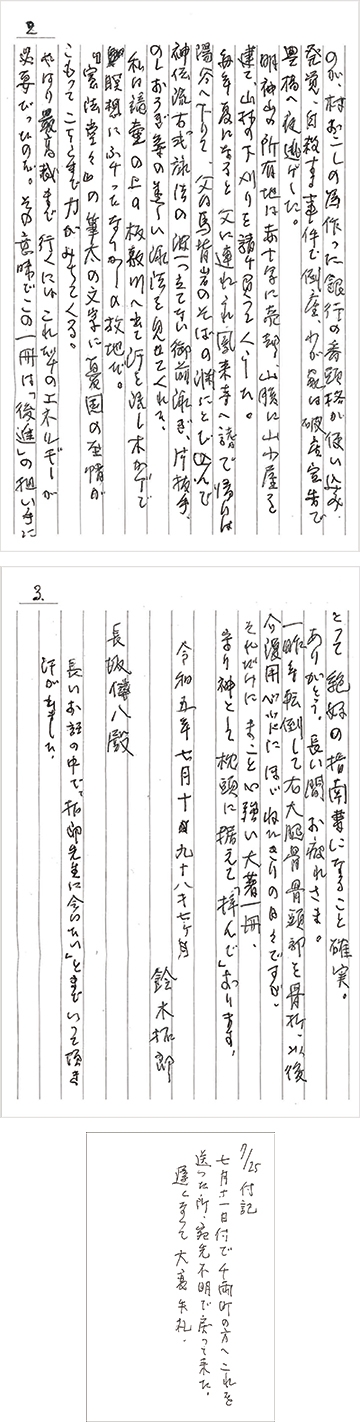 2
のが、村おこしの為作った銀行の番頭格が使い込み
発覚、自殺する事件で倒産、わが家は破産宣告で
豊橋へ夜逃げした。
明神山の所有地は赤十字に売却、山腹に山小屋を
建て、山林の下刈りを請け負ってくらした。
毎年夏になると父に連れられ鳳来寺へ詣で帰りは
陽谷へ下りて、父の馬背岩のそばの渕にとび込んで
神伝流古式泳法の波一つ立てない御前泳ぎ、片抜手、
のしおうぎ等の美しい泳法を見せてくれる。
私は瞑想にふけったなつかしの故地だ。
『憲法堂々』の筆太の文字に憂国の至情が
こもってこちらまで力がみちてくる。
やはり最高裁まで行くにはこれだけのエネルギーが
必要だったのだ。その意味でこの一冊は「後進」の担い手に
3.
とって絶好の指南書になること確実。
ありがとう。長い間お疲れさま。
一昨年転倒して右大腿骨骨頭部を骨折、以後
介護用ベッドにほぼねたきりの日々ですが、
それだけにまこと心強い大著一冊、
守り神として枕頭に据えて「拝んで」おります。
令和五年七月十日九十八才七ヶ月
鈴木拓郎
長坂傳八殿
長いお話の中で、「拓郎先生に会いたい」とまでいって頂き
汗がでました。
7/25 付記
七月十一日付で千両町の方へこれを
送った所、宛先不明で戻って来た。
遅くなって大変失礼。